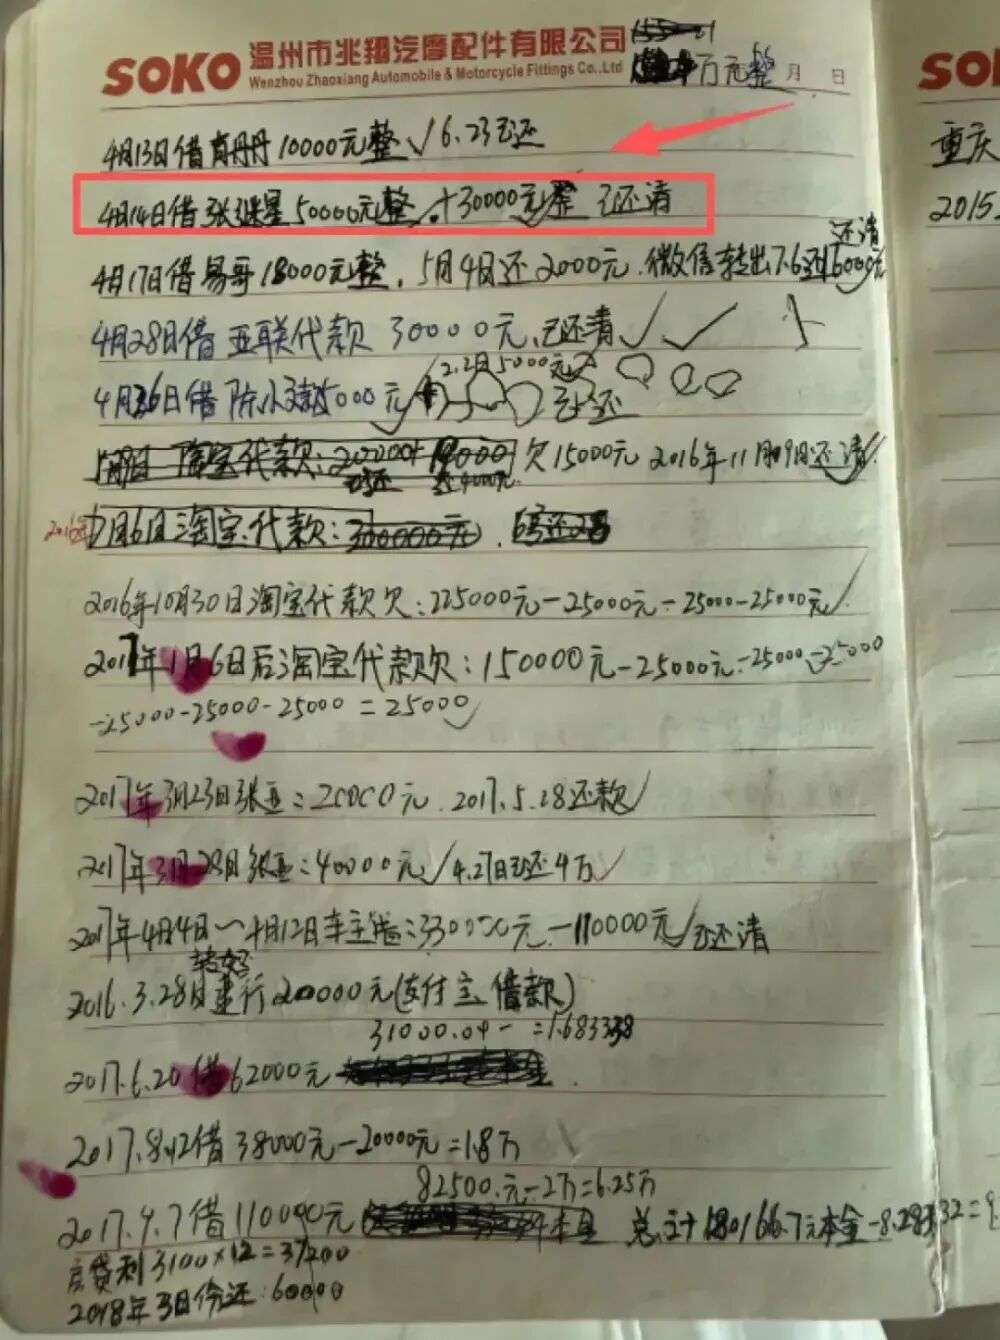 SOKO 温州市兆翔汽摩配件有限公司
Wenzhou Zhaoxiang Automobile & Motorcycle Fittings Co.,Ltd
万元整 月 日
4月13日借 丹丹10000元整√ 6.23已还
4月14日借张继星50000元整√+30000元整 已还清
还清
4月17日借易哥18000元整, 5月4日还2000元.微信转出7.6还16000元
4月28日借亚联代款 30000元,已还清√√
2.2日5000元
4月26日借陈小 5000元 已还
淘宝代款:200000+ 欠15000元 2016年11月09日还清√
已还 还4000元
2016年7月6日淘宝代款:300000元.
2016年10月30日淘宝代款欠:225000元-25000元-25000-25000元√
2017年1月6日后淘宝代款欠:150000元-25000元-25000-25000
-25000-25000-25000=25000√
2017年3月23日张亚:20000元.2017.5.28还款√
2017年3月28日张亚:40000元√4.27日已还4万√
2017年4月4日~4月12日车主 :330000元-110000元√已还清
转好
2016.3.28日建行200000元(支付宝借款)
31000.04- =1.683338
2017.6.20借62000元
2017.8.12借38000元-20000元=1.8万
82500.元-2万=6.25万
2017.9.7借110000元 总计180166.7元本金-8.28332=
房贷利3100×12=37200
2018年3日份还:60000
SOKO
重庆
2015.